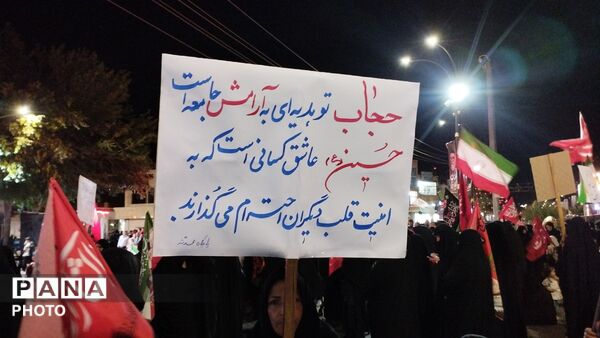 حجاب تو هدیه‌ای به آرامش جامعه است
حسین (ع) عاشق کسانی است که به
امنیت قلب دیگران احترام می گذارند
PANA
PHOTO